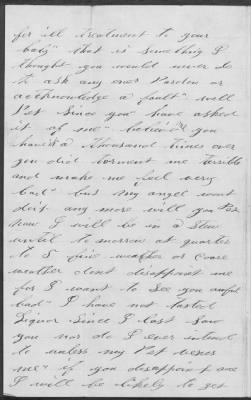 for ill treatment to your
baby" that is something I
thought you would never do
to ask any ones Pardon or
acknowledge a fault" well
Pet Since you have asked
it of me believe you
have a thousand times over
you did torment me terrible
and make me feel very
bad" but my angel wont
do it any more will you Pet
now I will be in a Stew
until to morrow at quarter
to 5 fine weather or
weather dont disappoint me
for I want to See you awful
bad" I have not tasted
Liquor Since I last Saw
you nor do I ever intend
to unless my Pet
me" if you disappoint me
I will be likely to get